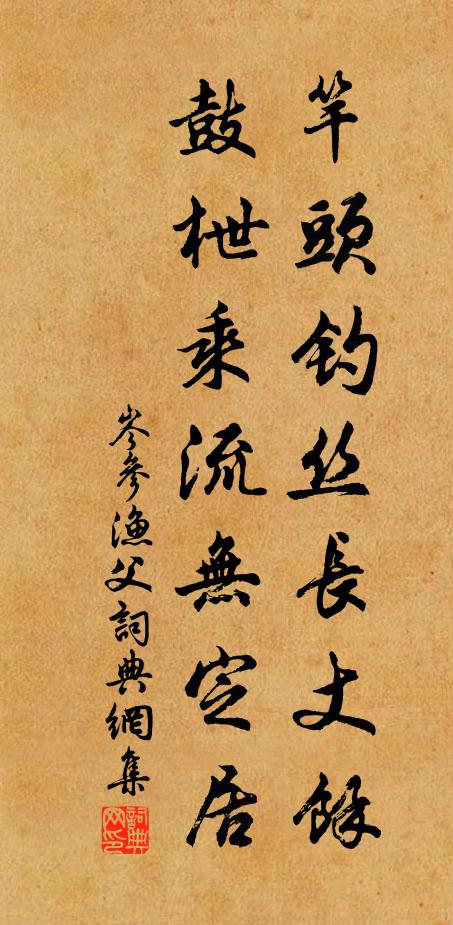 竿頭釣丝長丈餘
鼓枻乘流無定居
岑參漁父詞典網集
詞典网印